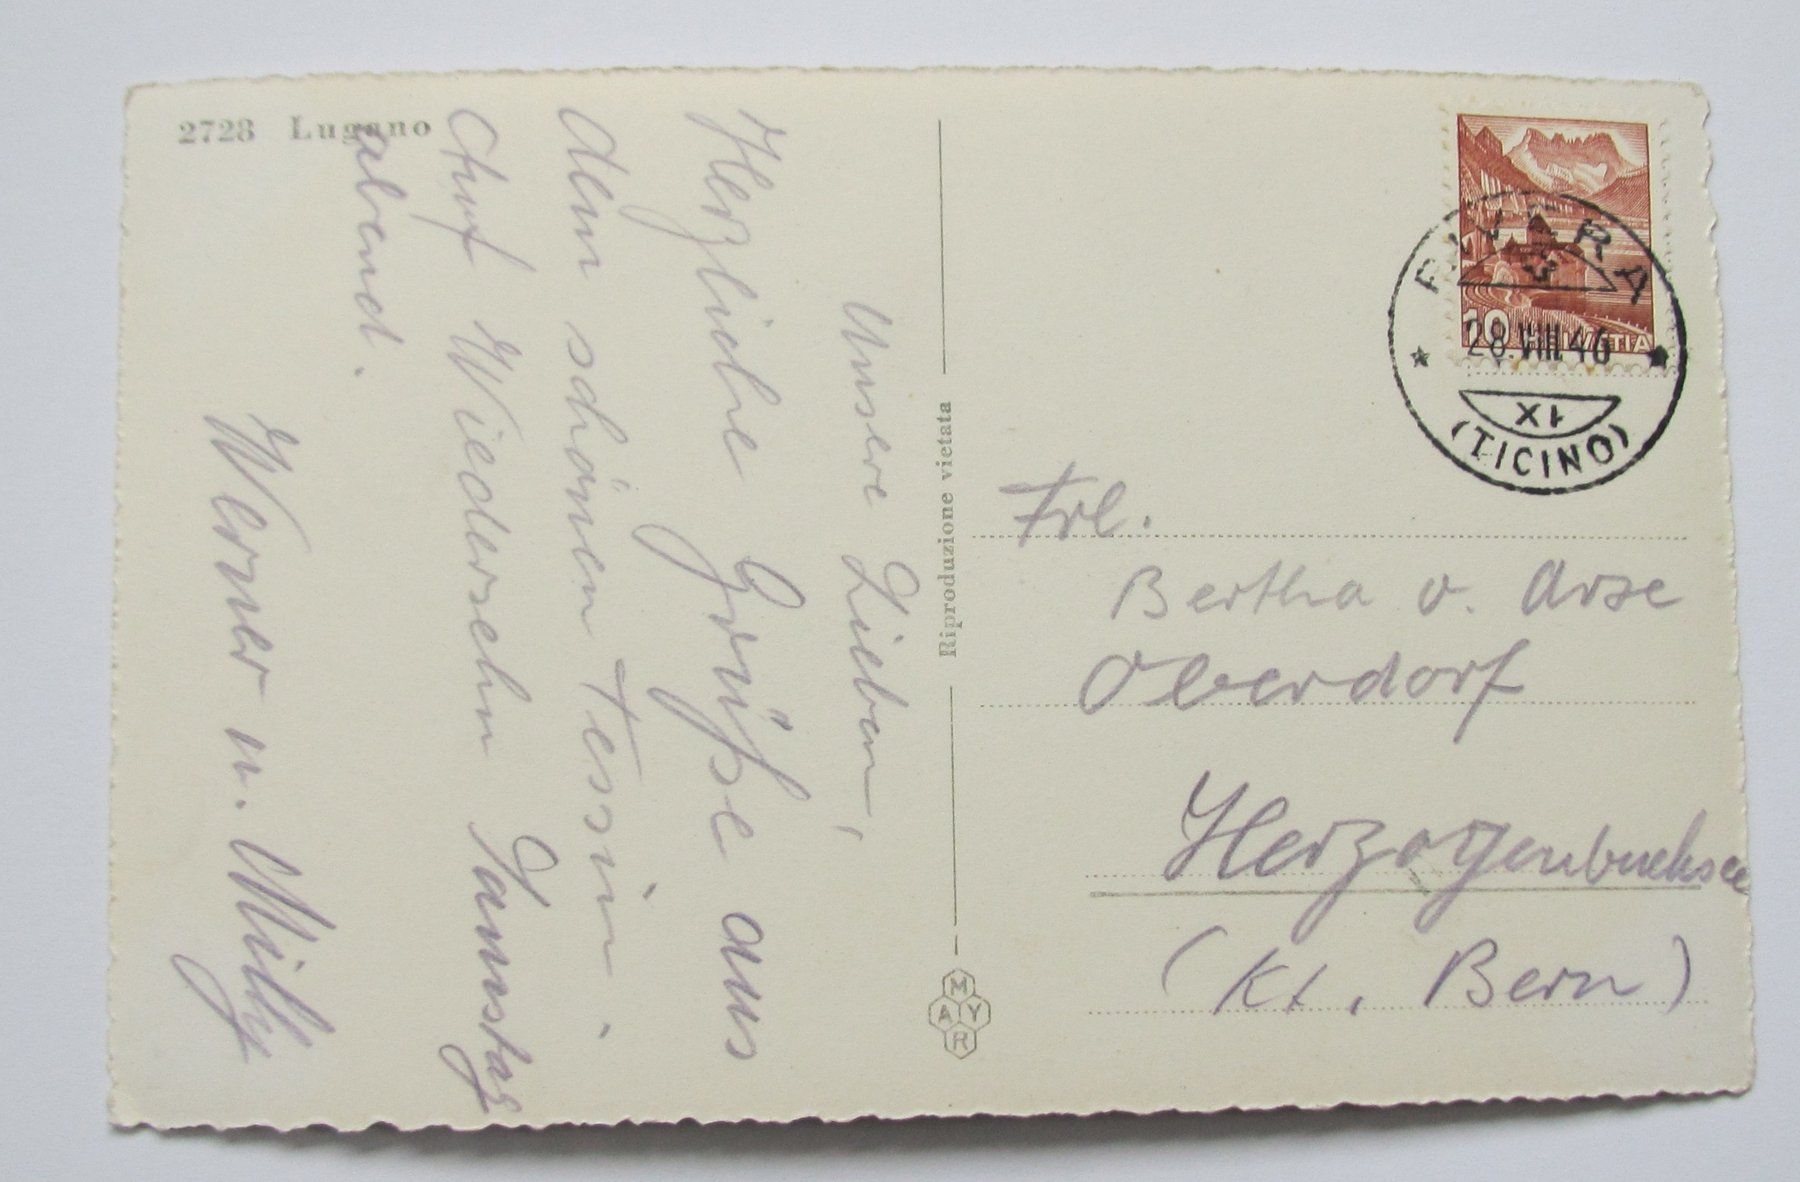 2728 Lugano
Unsere Lieben,
Herzliche Grüße aus
dem schönen Tessin.
Auf Wiedersehn Samstag
abend.
Werner u. Milly
Riproduzione vietata
MAYR
10 HELVETIA
28.VIII.46
XI
(TICINO)
Frl.
Bertha v. Arse
Oberdorf
Herzogenbuchsee
(Kt. Bern)